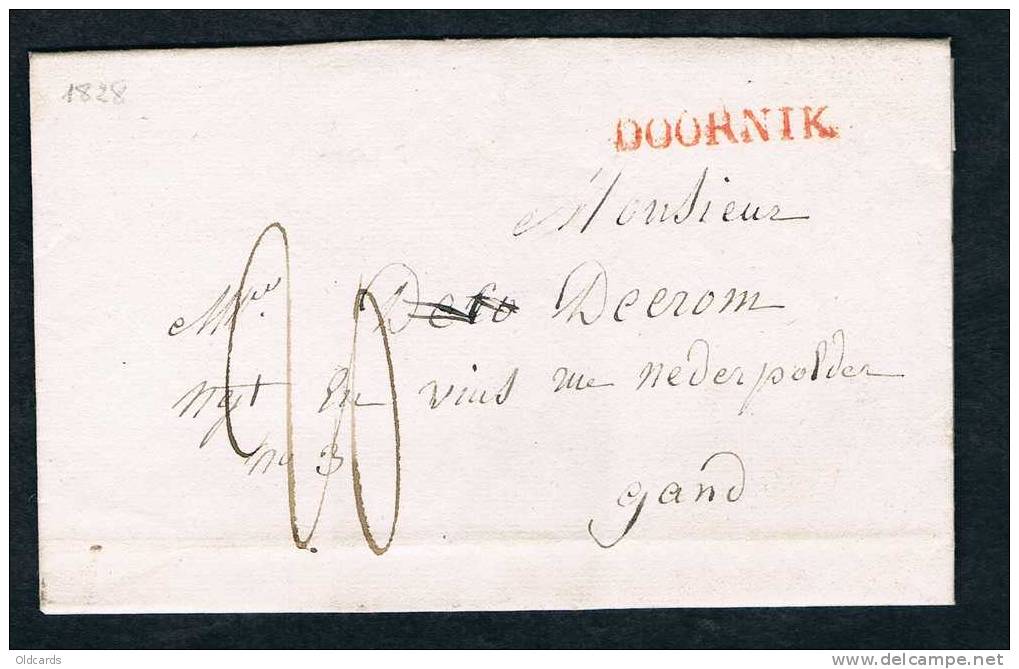 1828
DOORNIK
Monsieur
Deerom
ngt En vins rue nederpolder
no 3
gand
20
Oldcards
http://www.delcampe.net